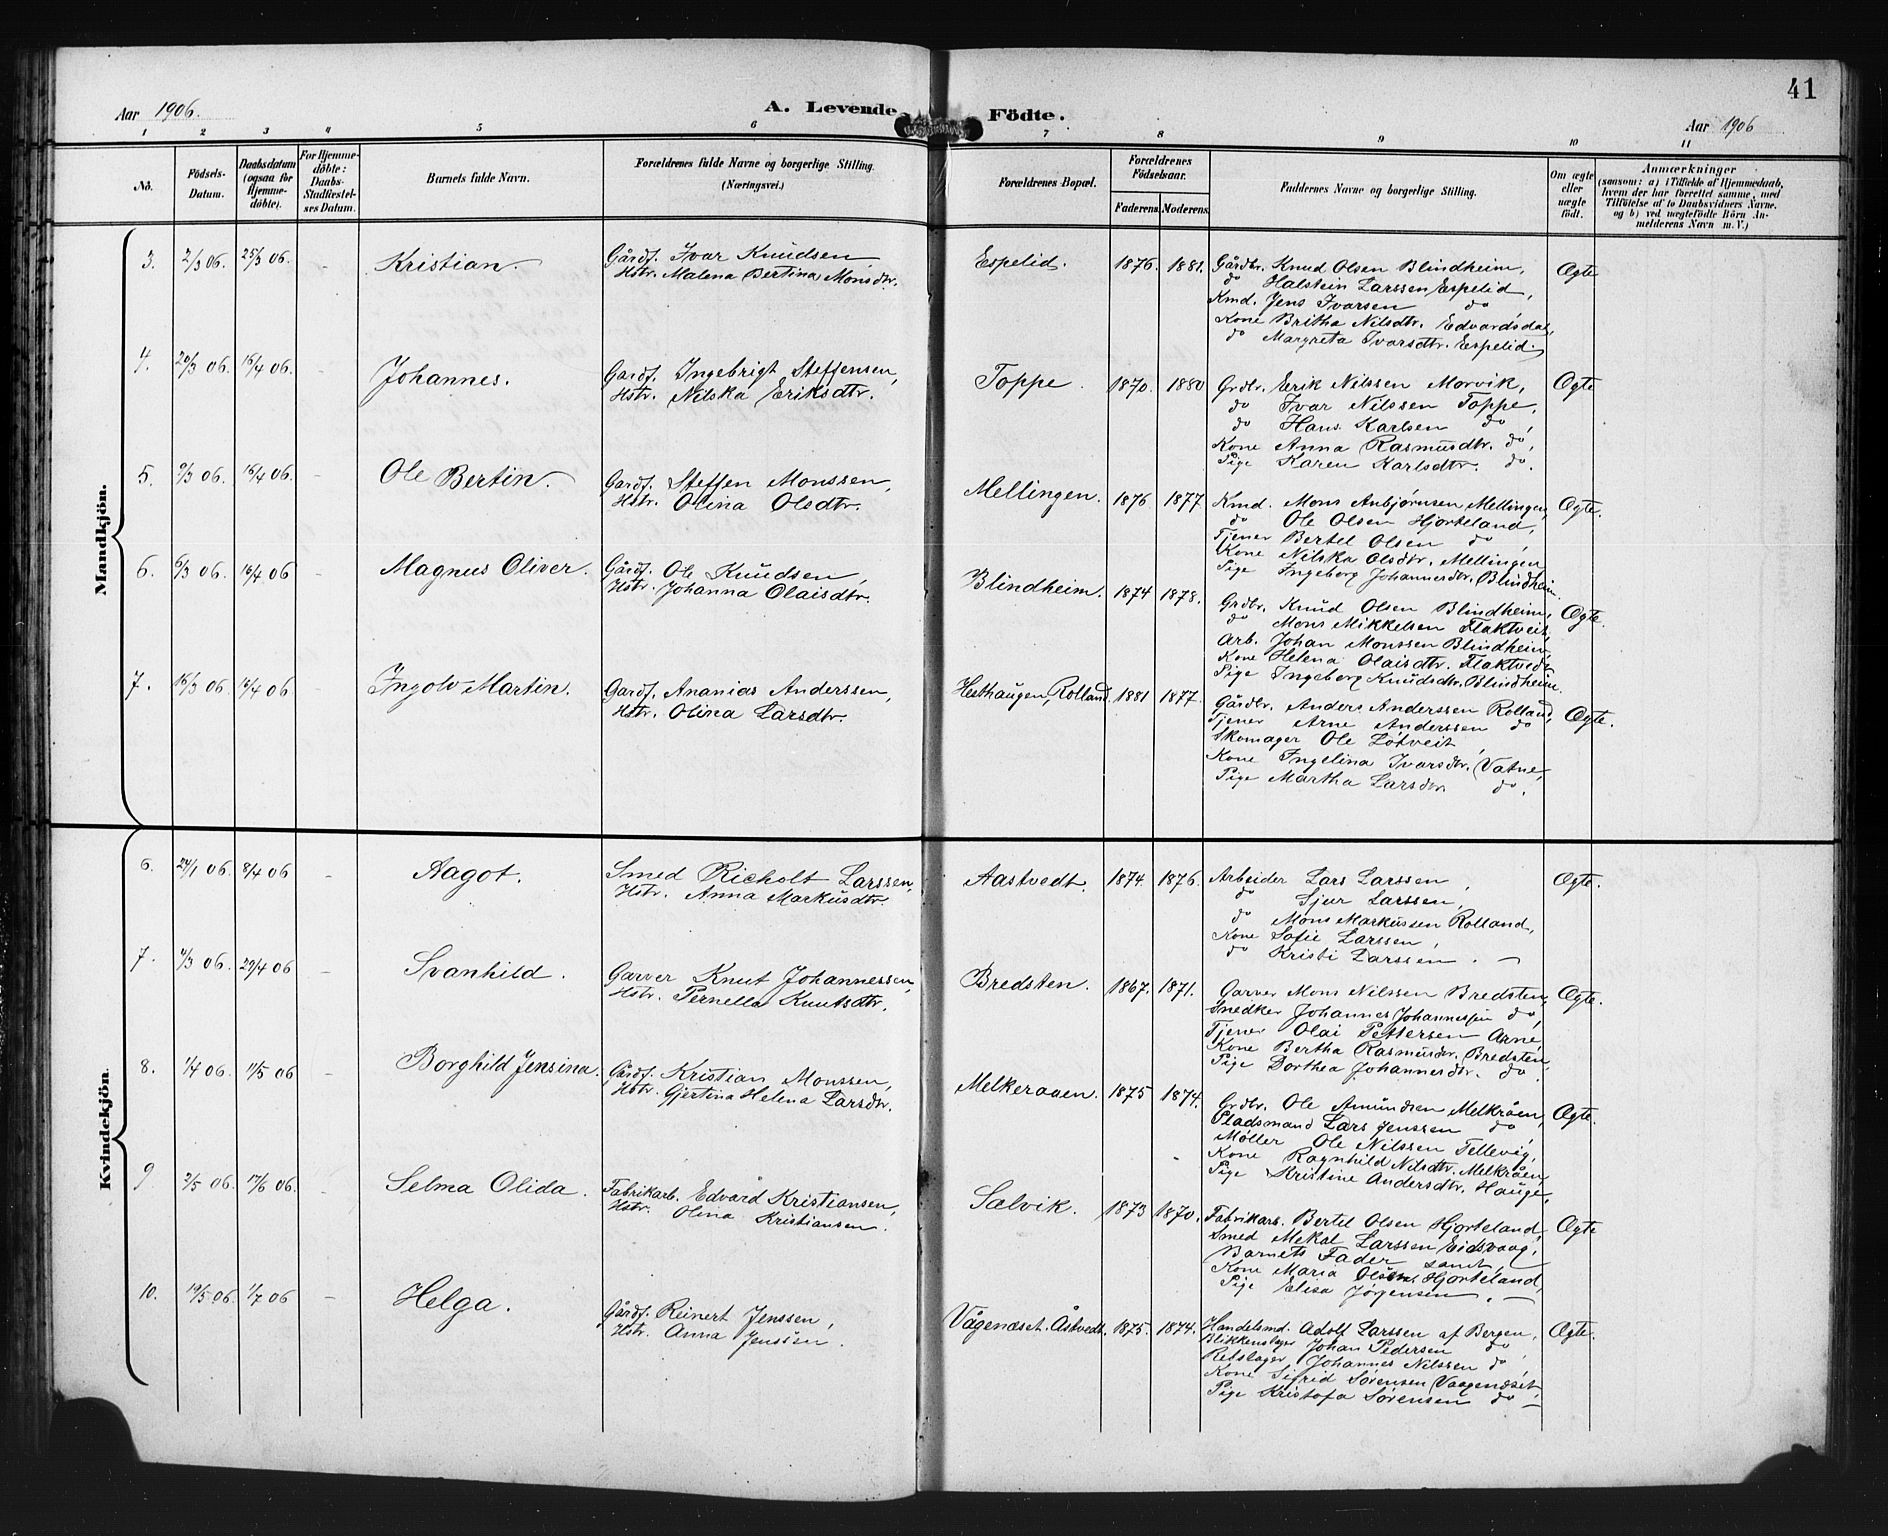 Aar 1906.
A. Levende Födte.
41
Aar 1906
1 2 3 4 5 6 7 8 9 10 11
No.
Födsels-Datum.
Daabsdatum (ogsaa for Hjemme-döbte).
For Hjemme-döbte: Daabs-Stadfæstel-ses Datum.
Barnets fulde Navn.
Forældrenes fulde Navne og borgerlige Stilling. (Næringsvei.)
Forældrenes Bopæl.
Forældrenes Födselsaar.
Faderens. Moderens.
Faddernes Navne og borgerlige Stilling.
Om ægte eller uægte födt.
Anmærkninger
(saasom: a) i Tilfælde af Hjemmedaab, hvem der har forrettet samme, med Tilföielse af to Daabsvidners Navne. og b) ved uægtefödte Börn An-melderens Navn m. V.)
Mandkjön.
3. 2/3 06. 25/3 06. Kristian.
Gårdf. Ivar Knudsen
Hstr. Malena Bertina Monsdtr.
Espelid. 1876. 1881.
Gårdbr. Knud Olsen Blindheim,
do Halstein Larssen Espelid,
Kmd. Jens Ivarsen do,
Kone Britha Nilsdtr. Edvardsdal,
do Margreta Ivarsdtr. Espelid.
Ægte
4. 20/3 06. 16/4 06. Johannes.
Gardf. Ingebrigt Steffensen,
Hstr. Nilska Eriksdtr.
Toppe. 1870. 1880
Grdbr. Erik Nilssen Morvik,
do Ivar Nilssen Toppe,
do Hans Karlsen do,
Kone Anna Rasmusdtr. do,
Pige Karen Karlsdtr. do.
Ægte
5. 9/3 06. 16/4 06. Ole Bertin.
Gardf. Steffen Monssen,
Hstr. Olina Olsdtr.
Mellingen. 1876. 1877
Kmd. Mons Anbjørnsen Mellingen,
do Ole Olsen Hjorteland,
Tjener Bertel Olsen do,
Kone Nilska Olsdtr. Mellingen
Pige Ingeborg Johannesdtr. Blindheim.
Ægte.
6. 6/3 06. 16/4 06 Magnus Oliver.
Gårdf. Ole Knudsen,
Hstr. Johanna Olaisdtr.
Blindheim. 1874 1878.
Grdbr. Knud Olsen Blindheim,
do Mons Mikkelsen Flaktveit,
Arb. Johan Monssen Blindheim,
Kone Helena Olaisdtr. Flaktvedt
Pige Ingeborg Knudsdtr. Blindheim.
Ægte.
7. 16/3 06. 16/4 06. Ingolv Martin.
Gardf. Ananias Anderssen,
Hstr. Olina Larsdtr.
Hesthaugen, Rolland. 1881 1877.
Gårdbr. Anders Anderssen Rolland,
Tjener Arne Anderssen do
Skomager Ole Løtveit,
Kone Ingelina Ivarsdtr. Vatne,
Pige Martha Larsdtr do.
Ægte.
Kvindekjön.
6. 24/1 06. 8/4 06 Aagot.
Smed Richolt Larssen,
Hstr. Anna Markusdtr.
Aastvedt. 1874. 1876.
Arbeider Lars Larssen,
do Sjur Larssen,
do Mons Markussen Rolland,
Kone Sofie Larssen,
do Kristi Larssen.
Ægte.
7. 4/3 06. 29/4 06 Svanhild.
Garver Knut Johannessen,
Hstr. Pernella Knutsdtr.
Bredsten. 1867. 1871.
Garver Mons Nilssen Bredsten,
Snedker Johannes Johannessen do,
Tjener Olai Pettersen Arne,
Kone Bertha Rasmusdtr. Bredsten,
Pige Dorthea Johannesdtr. do.
Ægte.
8. 1/4 06. 11/5 06 Borghild Jensina.
Gårdf. Kristian Monssen,
Hstr. Gjertina Helena Larsdtr.
Melkeraaen. 1875 1874.
Grdbr. Ole Amundsen Melkråen,
Pladsmand Lars Jenssen do
Møller Ole Nilssen Tellevig,
Kone Ragnhild Nilsdtr. Melkråen,
Pige Kristine Andersdtr. Hauge,
Ægte.
9 2/5 06. 17/6 06. Selma Olida.
Fabrikarb. Edvard Kristiansen,
Hstr. Olina Kristiansen.
Salvik. 1873 1870.
Fabrikarb. Bertel Olsen Hjorteland,
Smed Mekal Larssen Eidsvaag,
Barnets Fader samt,
Kone Maria Olsen Hjorteland,
Pige Elisa Jørgensen.
Ægte
10. 19/5 06. 1/7 06 Helga.
Gårdf. Reinert Jenssen,
Hstr. Anna Jenssen.
Vågenæset. Åstvedt. 1875. 1874.
Handelsmd. Adolf Larssen af Bergen,
Blikkenslager Johan Pedersen do,
Rebslager Johannes Nilssen do,
Kone Sifrid Sørensen Vaagenæset,
Pige Kristofa Sørensen do
Ægte.